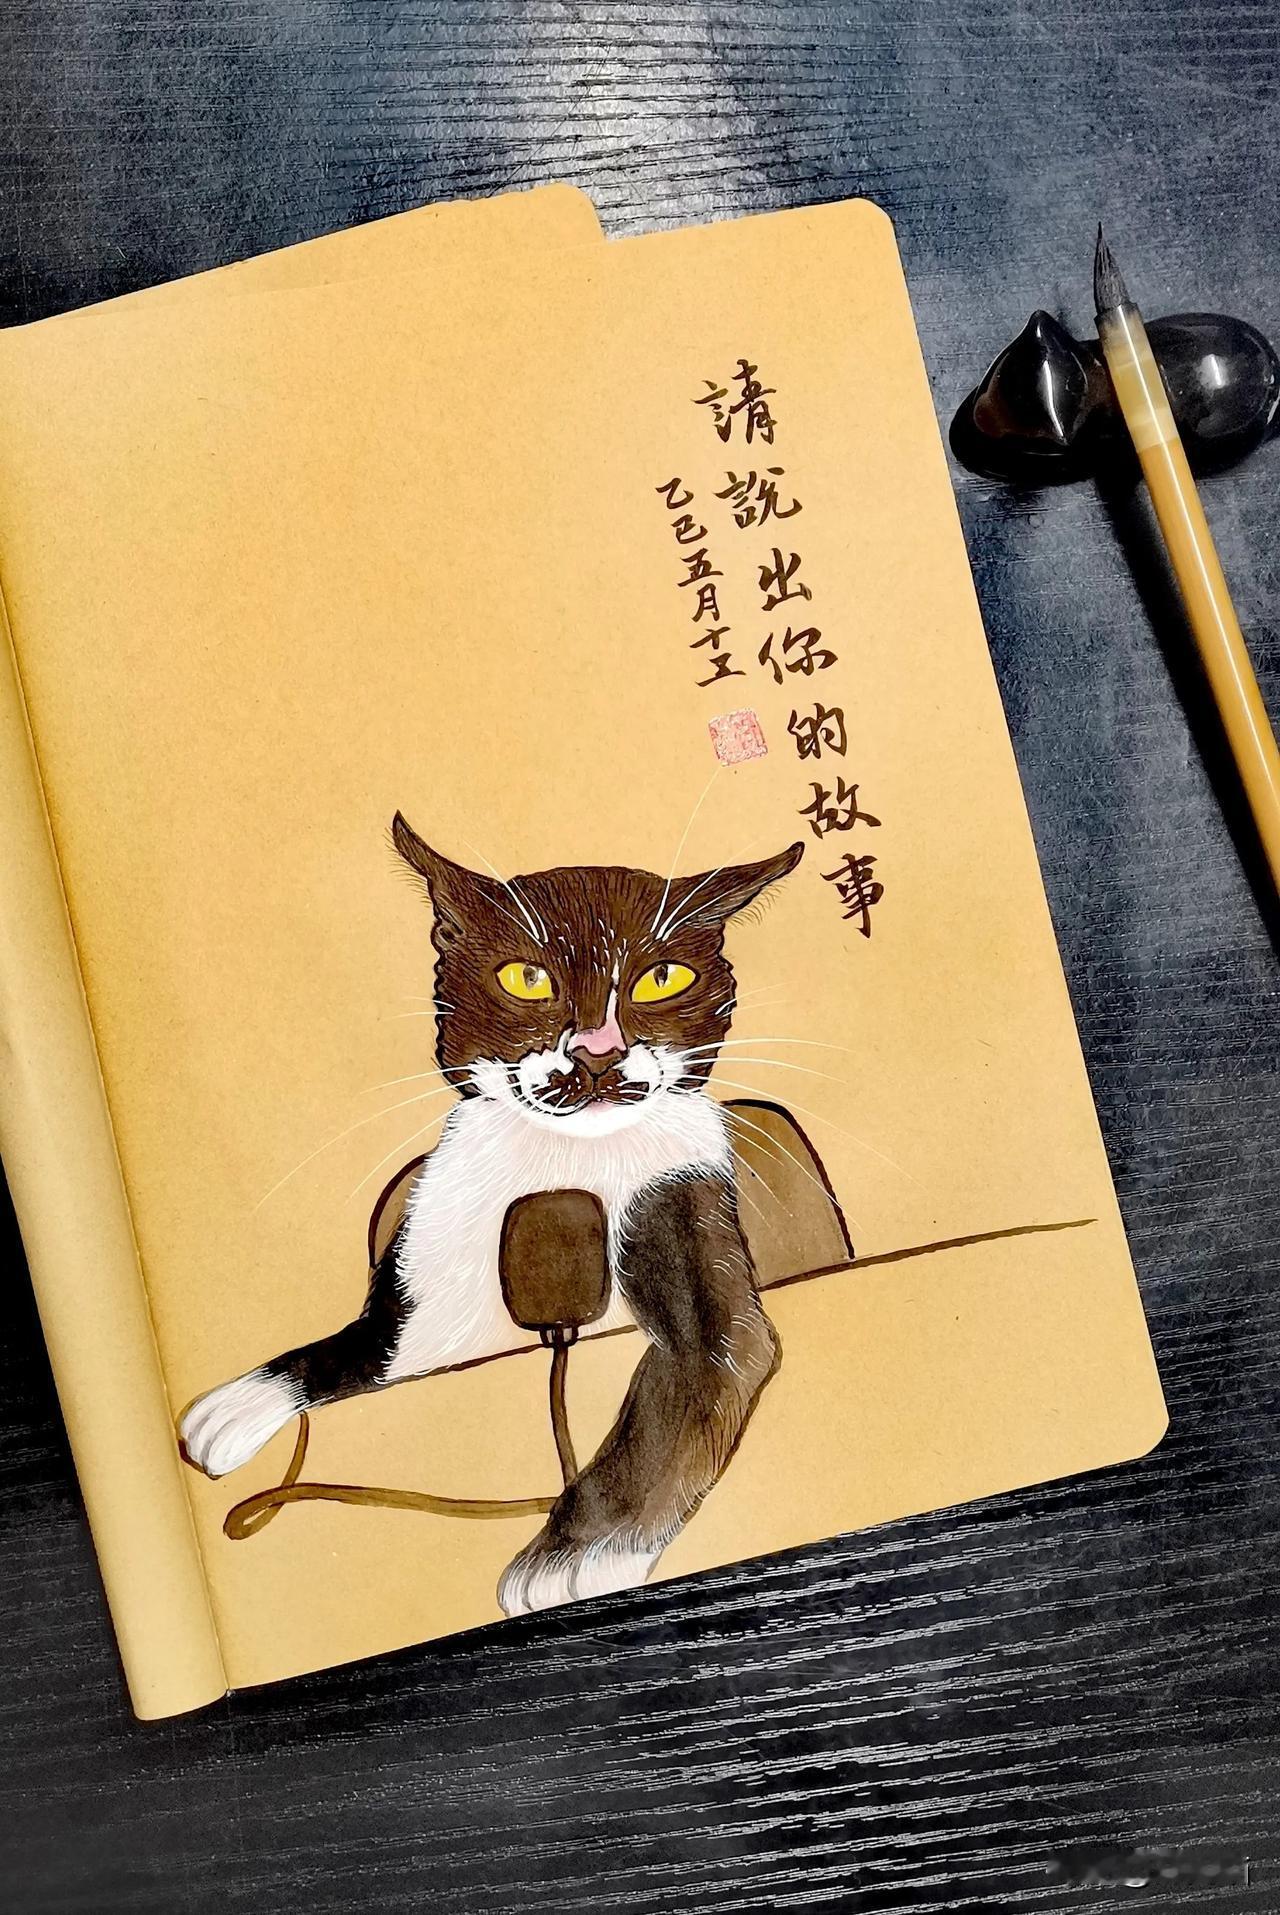 請說出你的故事
乙巳五月十五